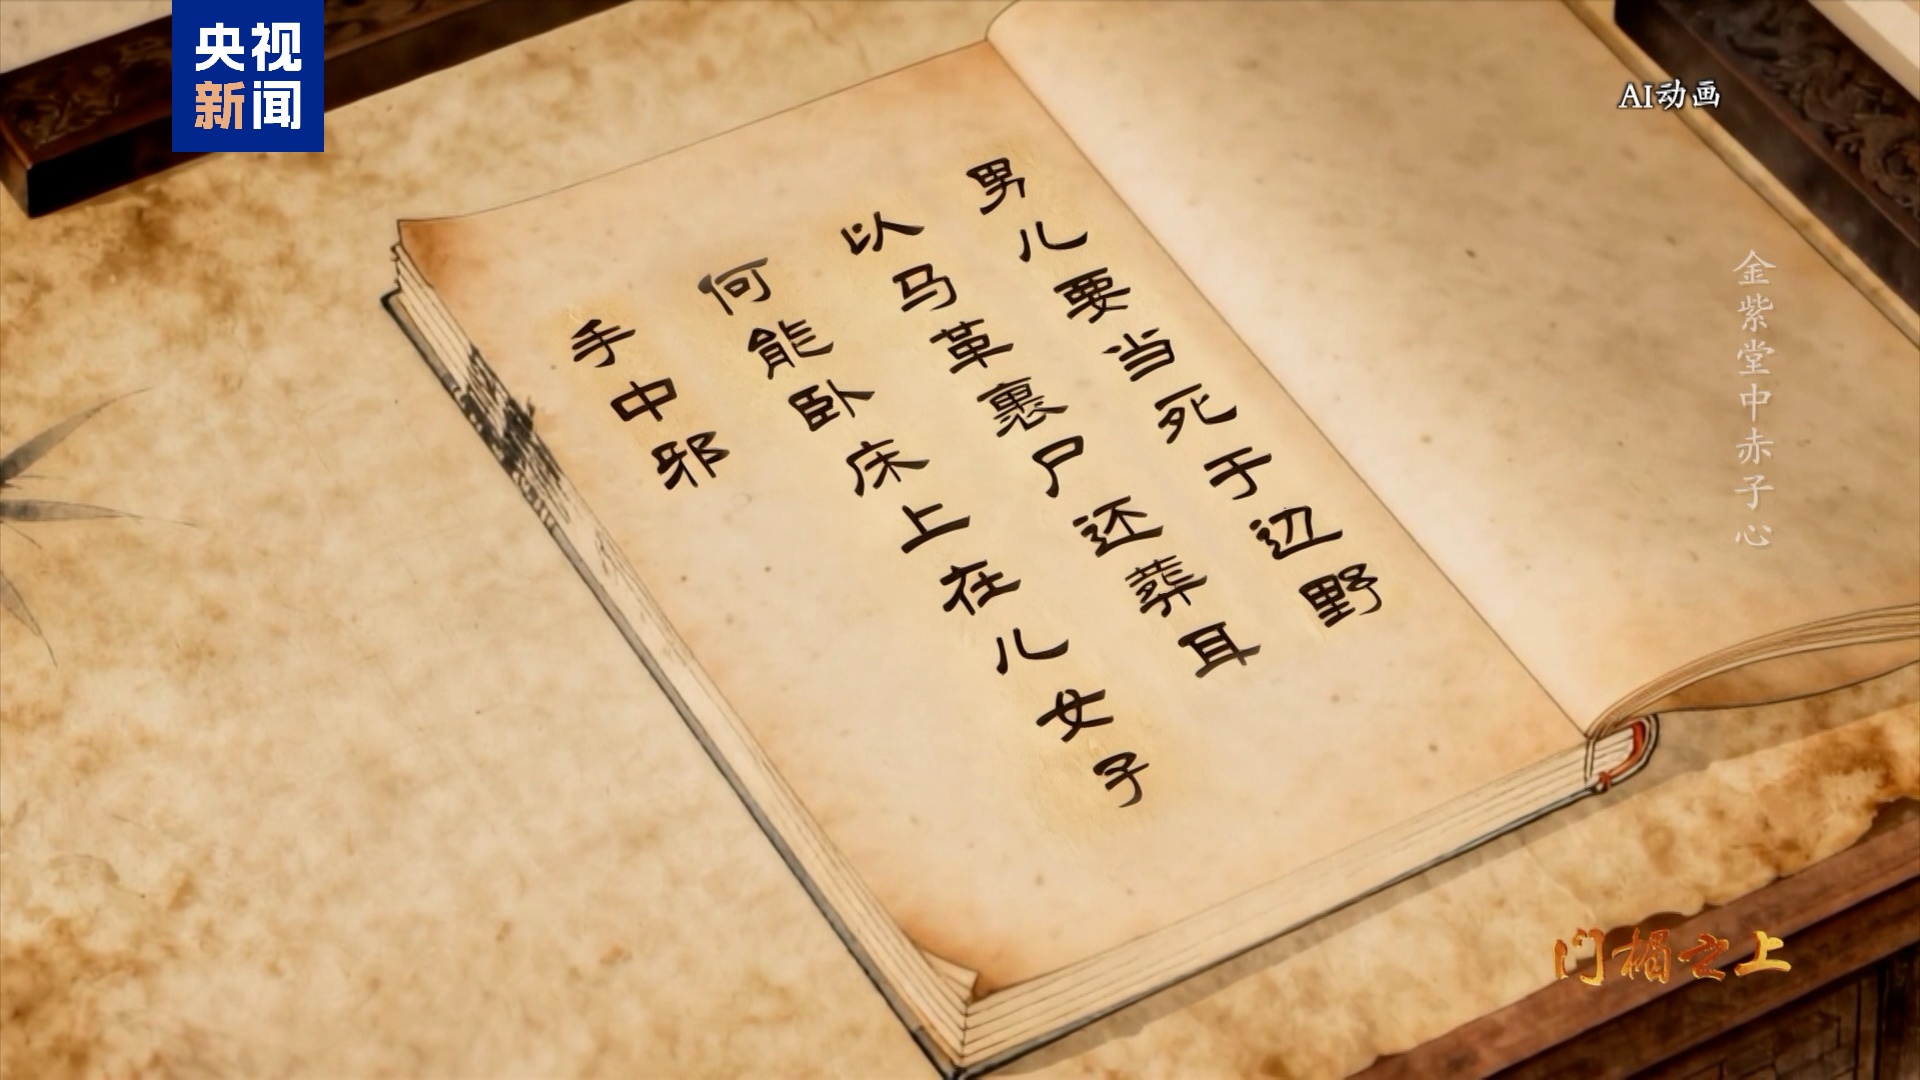 央视
新闻
AI动画
男儿要当死于边野
以马革裹尸还葬耳
何能卧床上在儿女子
手中邪
金紫堂中赤子心
门楣之上